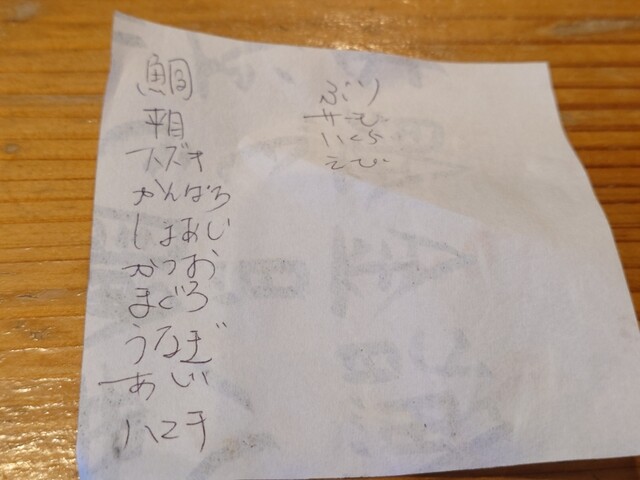 鯛
平目
スズキ
かんぱち
しまあじ
かつお
まぐろ
うなぎ
あじ
ハマチ
ぶり
いくら
えび